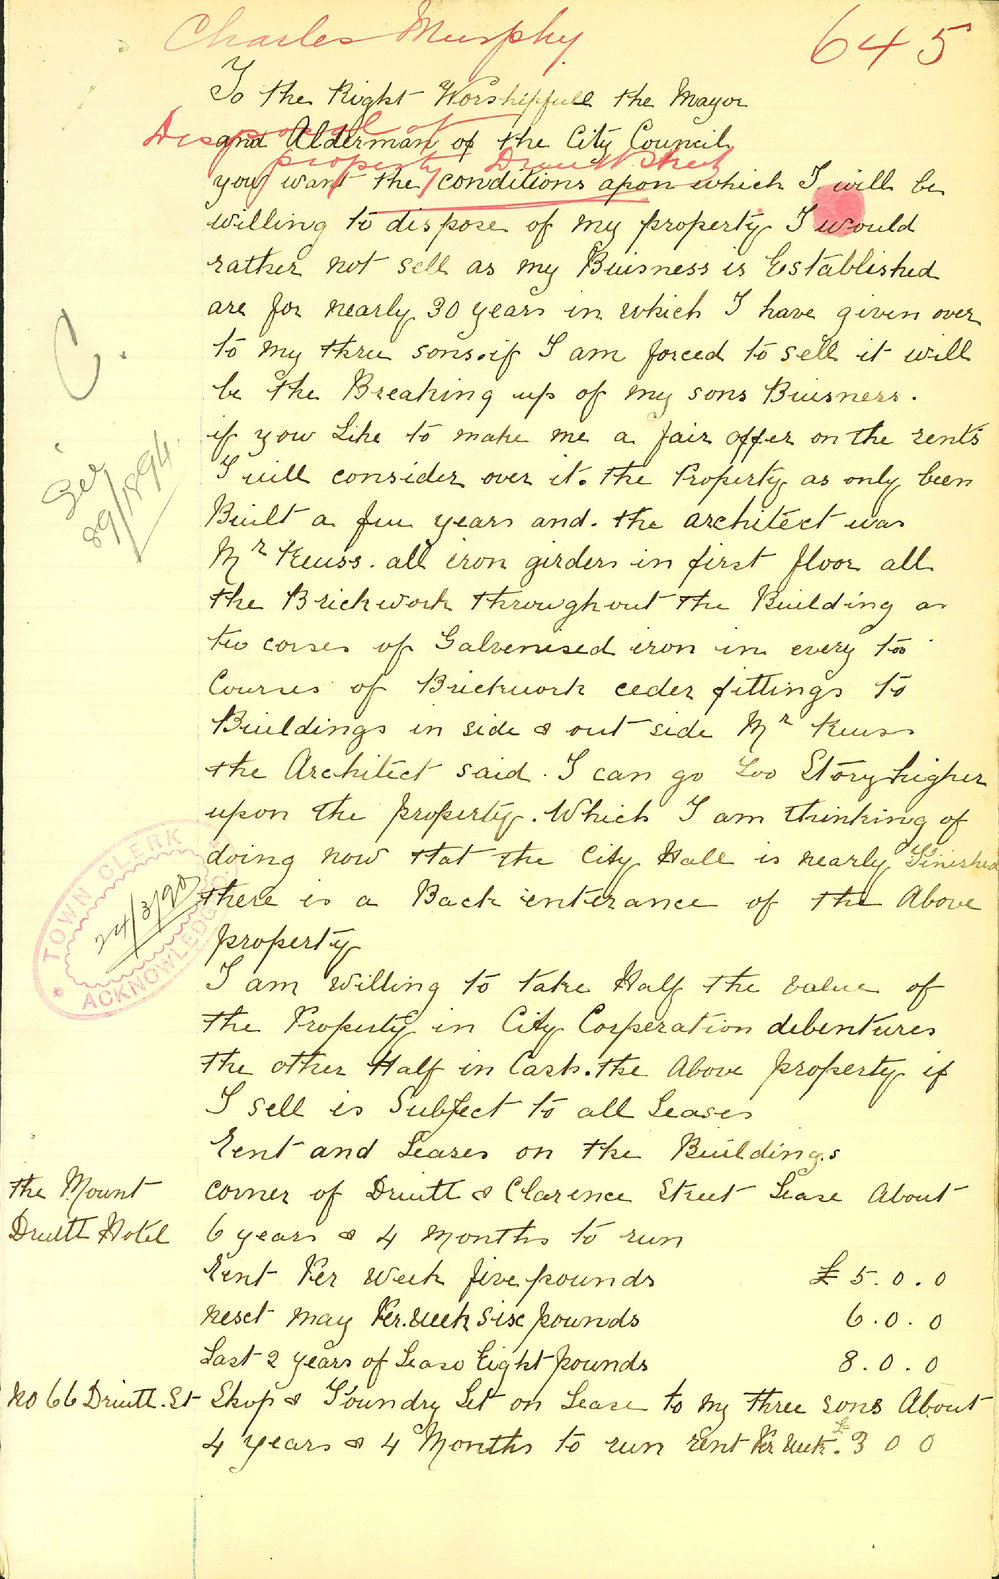 Charles Murphy
645
To the Right Worshipfull the Mayor
and Alderman of the City Council
Disposal of
property Druitt Street
you want the conditions apon which I will be
willing to dispose of my property I would
rather not sell as my Buisness is Established
are for nearly 30 years in which I have given over
to my three sons. if I am forced to sell it will
be the Breaking up of my sons Buisness.
if you Like to make me a fair offer on the rents
I will consider over it. the Property as only been
Built a few years and. the architect was
Mr Reuss. all iron girders in first floor all
the Brickwork throughout the Building as
two corses of Galvenised iron in every too
Courses of Brickwork ceder fittings to
Buildings in side & out side Mr Reuss
the Architect said. I can go Too Story higher
upon the property. Which I am thinking of
doing now that the City Hall is nearly Finished
there is a Back enterance of the Above
property
I am willing to take Half the value of
the Property in City Corperation debentures
the other Half in Cash. the Above property if
I sell is Subject to all Leases
Rent and Leases on the Buildings
the Mount
Druitt Hotel
corner of Druitt & Clarence Street Lease About
6 years & 4 Months to run
Rent Per Week five pounds £5.0.0
next May Per. Week six pounds 6.0.0
Last 2 years of Lease Eight pounds 8.0.0
No 66 Druitt. St Shop & Foundry Let on Lease to my three sons About
4 years & 4 Months to run rent Per Week. £3 0 0
C.
89/1894
TOWN CLERK
24/3/90
ACKNOWLEDGED